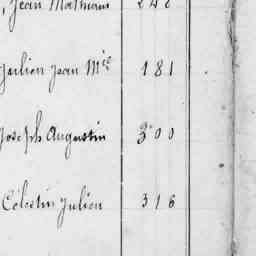 , Jean Mathurin 248
Julien Jean M<sup>ie</sup> 181
Joseph Augustin 300
Célestin Julien 316